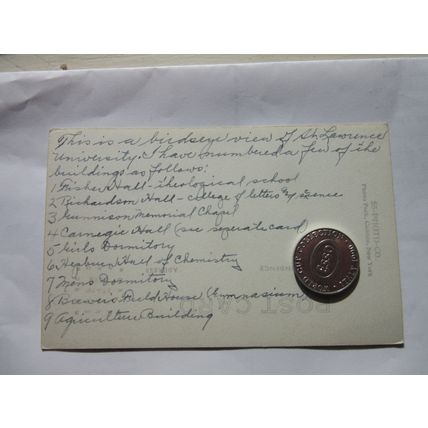 This is a birdseye view of St. Lawrence
University. I have numbered a few of the
buildings as follows:
1 Fisher Hall - theological school
2 Richardson Hall - college of letters & Science
3 Gunnison Memorial Chapel
4 Carnegie Hall (see seperate card)
5 Girls Dormitory
6 Hepburn Hall of Chemistry
7 Mens Dormitory
8 Brewers Field House (Gymnasium)
9 Agriculture Building
POST CARD